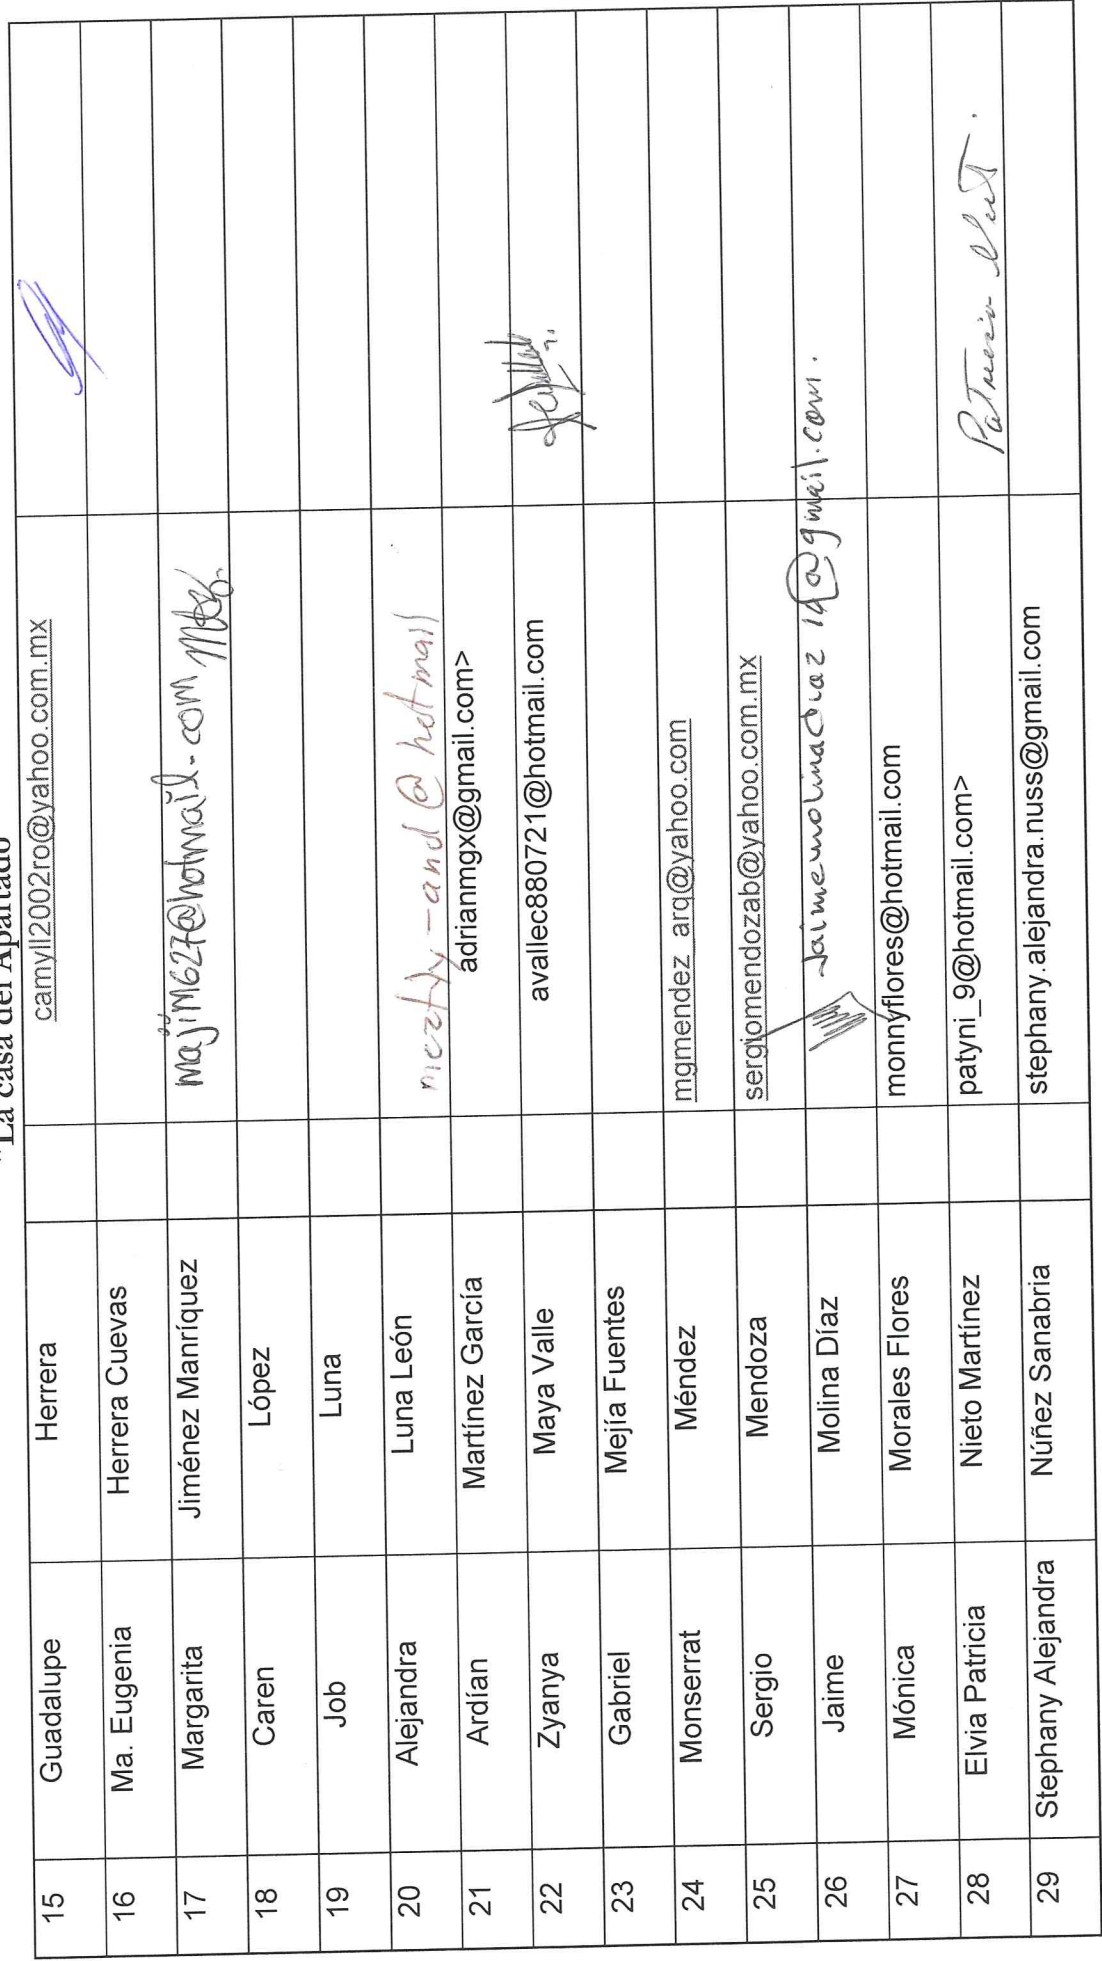 "La casa del Apartado"
15 Guadalupe Herrera camyll2002ro@yahoo.com.mx
16 Ma. Eugenia Herrera Cuevas
17 Margarita Jiménez Manríquez majim627@hotmail.com
18 Caren López
19 Job Luna
20 Alejandra Luna León meztly-and@hotmail
21 Ardían Martínez García adrianmgx@gmail.com>
22 Zyanya Maya Valle avallec880721@hotmail.com
23 Gabriel Mejía Fuentes
24 Monserrat Méndez mgmendez_arq@yahoo.com
25 Sergio Mendoza sergiomendozab@yahoo.com.mx
26 Jaime Molina Díaz Jaimemolinadiaz14@gmail.com.
27 Mónica Morales Flores monnyflores@hotmail.com
28 Elvia Patricia Nieto Martínez patyni_9@hotmail.com> Patricia Nieto.
29 Stephany Alejandra Núñez Sanabria stephany.alejandra.nuss@gmail.com